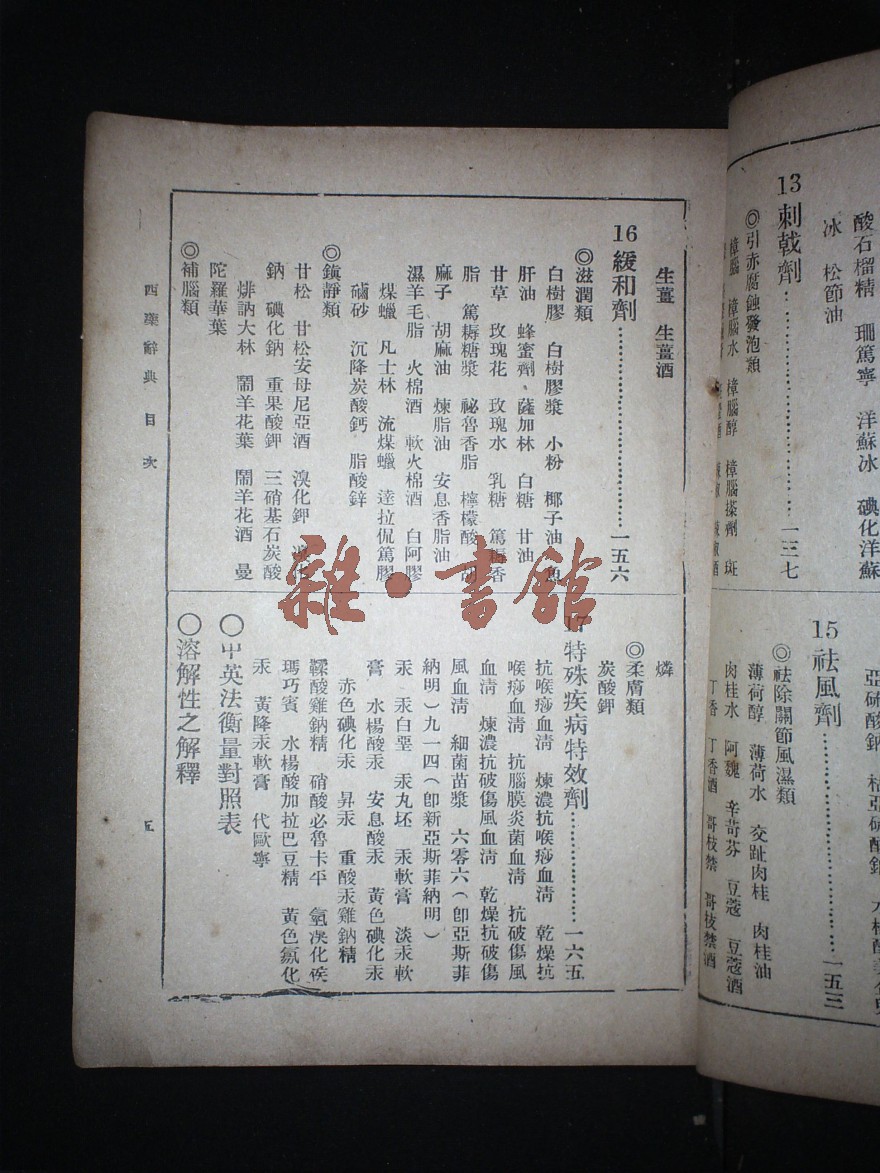 酸石榴精　珊篤寧　洋蘇冰　碘化洋蘇
冰　松節油
13 刺戟劑……一三七
◎引赤腐蝕發泡類
樟腦　樟腦水　樟腦醇　樟腦搽劑　斑
15 祛風劑……一五三
◎祛除關節風濕類
薄荷醇　薄荷水　交趾肉桂　肉桂油
肉桂水　阿魏　辛苛芬　豆蔻　豆蔻酒
丁香　丁香酒　哥枝禁　哥枝禁酒
生薑　生薑酒
16 緩和劑……一五六
◎滋潤類
白樹膠　白樹膠漿　小粉　椰子油　魚
肝油　蜂蜜劑　薩加林　白糖　甘油
甘草　玫瑰花　玫瑰水　乳糖　篤耨香
脂　篤耨糖漿　祕魯香脂　檸檬酸　胡
麻子　胡麻油　煉脂油　安息香脂油
濕羊毛脂　火棉酒　軟火棉酒　白阿膠
煤蠟　凡士林　流煤蠟　達拉侃篤膠
硇砂　沉降炭酸鈣　脂酸鋅
◎鎮靜類
甘松　甘松安母尼亞酒　溴化鉀　溴化
鈉　碘化鈉　重果酸鉀　三硝基石炭酸
㷅訥大林　鬧羊花葉　鬧羊花酒　曼
陀羅華葉
◎補腦類
燐
◎柔膚類
炭酸鉀
17 特殊疾病特效劑……一六五
抗喉痧血清　煉濃抗喉痧血清　乾燥抗
喉痧血清　抗腦膜炎菌血清　抗破傷風
血清　煉濃抗破傷風血清　乾燥抗破傷
風血清　細菌苗漿　六零六（卽亞斯菲
納明）九一四（卽新亞斯菲納明）
汞　汞白堊　汞丸坯　汞軟膏　淡汞軟
膏　水楊酸汞　安息酸汞　黃色碘化汞
赤色碘化汞　昇汞　重酸汞雞鈉精
鞣酸雞鈉精　硝酸必魯卡平　氫溴化候
瑪巧賓　水楊酸加拉巴豆精　黃色氯化
汞　黃降汞軟膏　代歐寧
○中英法衡量對照表
○溶解性之解釋
西藥辭典　目次
五
雜·書館